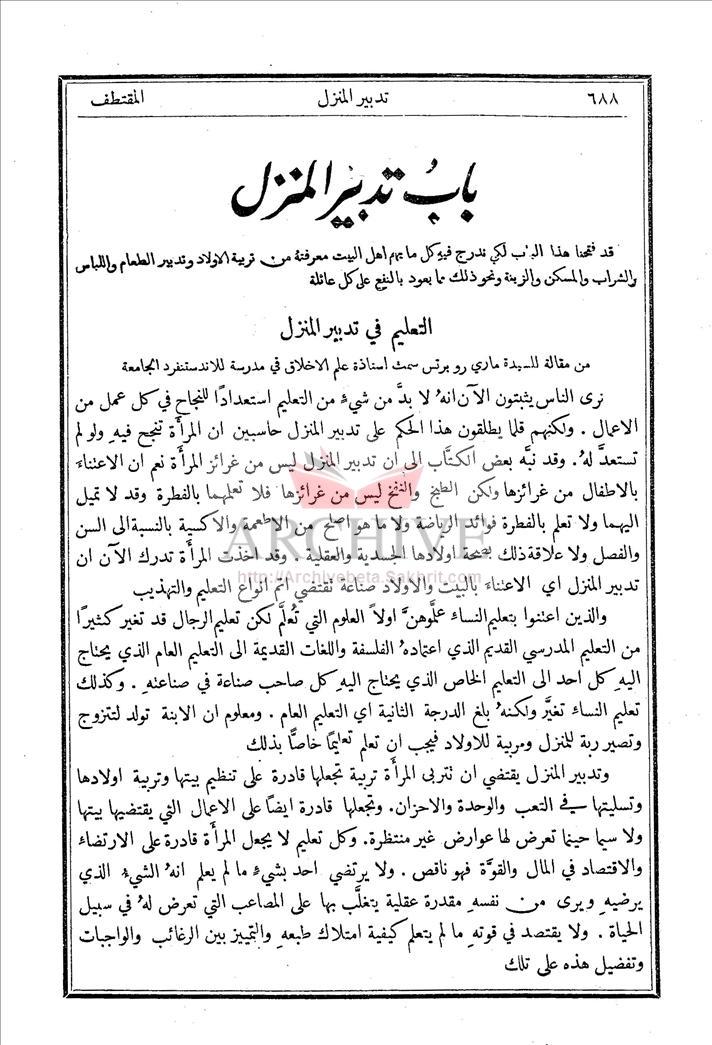 ٦٨٨ تدبير المنزل المقتطف
باب تدبير المنزل
قد فتحنا هذا الباب لكي ندرج فيهِ كل ما يهم اهل البيت معرفتهُ من تربية الاولاد وتدبير الطعام واللباس
والشراب والمسكن والزينة ونحو ذلك مما يعود بالنفع على كل عائلة
التعليم في تدبير المنزل
من مقالة للسيدة ماري روبرتس سمث استاذة علم الاخلاق في مدرسة للاندستنفرد الجامعة
نرى الناس يثبتون الآن انهُ لا بدَّ من شيءٍ من التعليم استعدادًا للنجاح في كل عمل من
الاعمال . ولكنهم قلما يطلقون هذا الحكم على تدبير المنزل حاسبين ان المرأة تنجح فيهِ ولو لم
تستعدَّ لهُ . وقد نبَّه بعض الكتَّاب الى ان تدبير المنزل ليس من غرائز المرأة نعم ان الاعتناء
بالاطفال من غرائزها ولكن الطبخ والنفخ ليس من غرائزها فلا تعلمهما بالفطرة وقد لا تميل
اليهما ولا تعلم بالفطرة فوائد الرياضة ولا ما هو اصلح من الاطعمة والاكسية بالنسبة الى السن
والفصل ولا علاقة ذلك بصحة اولادها الجسدية والعقلية . وقد اخذت المرأة تدرك الآن ان
تدبير المنزل اي الاعتناء بالبيت والاولاد صناعة تقتضي اتم انواع التعليم والتهذيب
والذين اعتنوا بتعليم النساء علَّموهنَّ اولاً العلوم التي تُعلَّم لكن تعليم الرجال قد تغير كثيرًا
من التعليم المدرسي القديم الذي اعتمادهُ الفلسفة واللغات القديمة الى التعليم العام الذي يحتاج
اليهِ كل احد الى التعليم الخاص الذي يحتاج اليهِ كل صاحب صناعة في صناعتهِ . وكذلك
تعليم النساء تغيَّر ولكنهُ بلغ الدرجة الثانية اي التعليم العام . ومعلوم ان الابنة تولد لتتزوج
وتصير ربة للمنزل ومربية للاولاد فيجب ان تعلم تعليمًا خاصًّا بذلك
وتدبير المنزل يقتضي ان تتربى المرأة تربية تجعلها قادرة على تنظيم بيتها وتربية اولادها
وتسليتها في التعب والوحدة والاحزان. وتجعلها قادرة ايضًا على الاعمال التي يقتضيها بيتها
ولا سيما حينما تعرض لها عوارض غير منتظرة. وكل تعليم لا يجعل المرأة قادرة على الارتضاء
والاقتصاد في المال والقوَّة فهو ناقص . ولا يرتضي احد بشيءٍ ما لم يعلم انهُ الشيءُ الذي
يرضيهِ ويرى من نفسهِ مقدرة عقلية يتغلَّب بها على المصاعب التي تعرض لهُ في سبيل
الحياة . ولا يقتصد في قوتهِ ما لم يتعلم كيفية امتلاك طبعهِ والتمييز بين الرغائب والواجبات
وتفضيل هذه على تلك
ARCHIVE
http://Archivebeta.Sakhrit.com